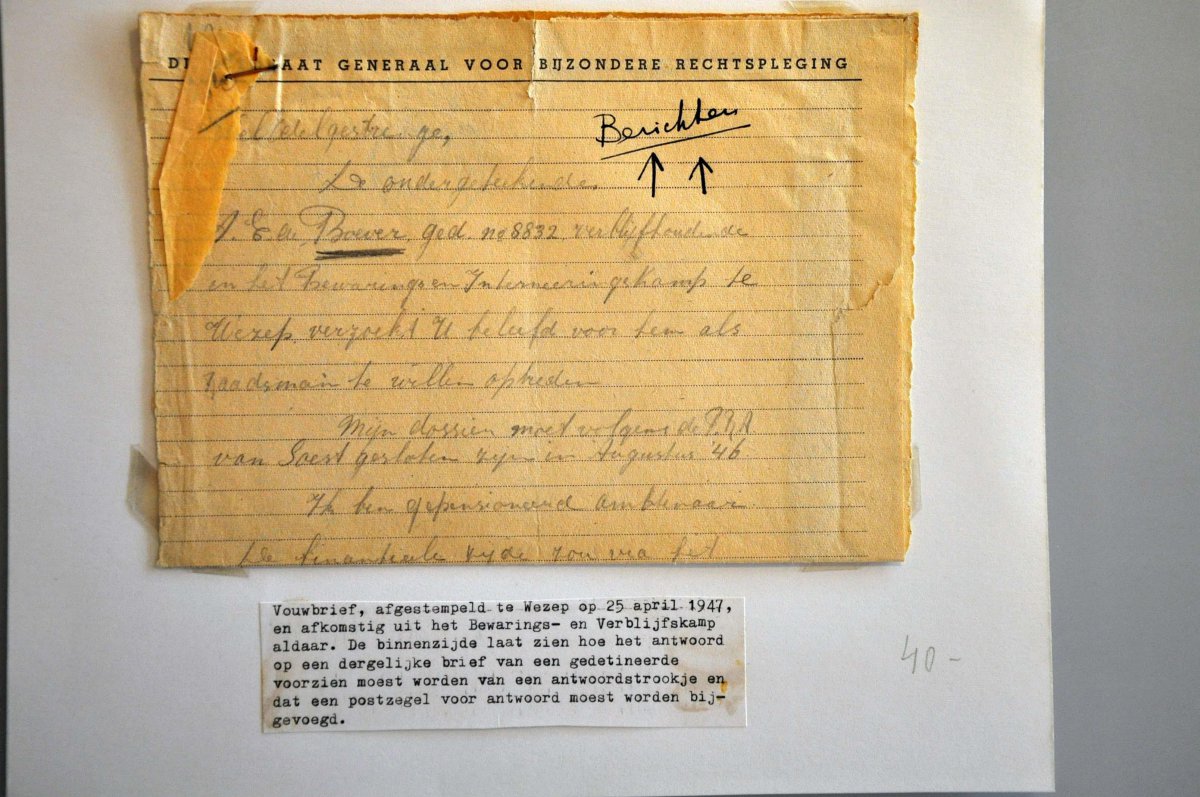 DI AAT GENERAAL VOOR BIJZONDERE RECHTSPLEGING
Berichten
De ondergetekende
A. E de Boever, ged. no 8832 verblijfhoudende
in het Bewarings en Interneeringskamp te
Wezep, verzoekt U beleefd voor hem als
raadsman te willen optreden
Mijn dossier moet volgens de P.R.A
van Soest gesloten zijn in Augustus '46
Ik ben gepensioneerd ambtenaar
De financieele zijde zou via het
Vouwbrief, afgestempeld te Wezep op 25 april 1947,
en afkomstig uit het Bewarings- en Verblijfskamp
aldaar. De binnenzijde laat zien hoe het antwoord
op een dergelijke brief van een gedetineerde
voorzien moest worden van een antwoordstrookje en
dat een postzegel voor antwoord moest worden bij-
gevoegd.
40-